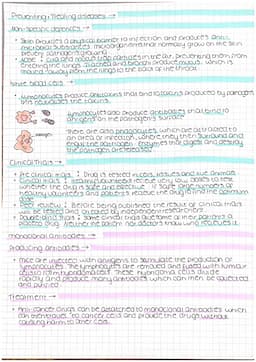 Preventing + Treating diseases →
Non-specific defences →
• Skin provides a physical barrier to infection and produces anti-
microbial substances. microorganisms that normally grow on the skin
prevent pathogens growing
• Nose : Cilia and mucus trap particles in the air, preventing them from
entering the lungs. Trachea and bronchi produce mucus, which is
moved away from the lungs to the back of the throat.
White blood cells →
• Lymphocytes produce antitoxins that bind to toxins produced by pathogens
this neutralises the toxins.
Lymphocytes also produce antibodies that bind to
antigens on the pathogen's surface
pathogen
There are also phagocytes, which are attracted to
an area of infection, where they then surround and
engulf the pathogen. enzymes that digest and destroy
the pathogen are released
Clinical trials →
• Pre clinical trials : Drug is tested in cells, tissues and live animals
• Clinical trials : healthy volunteers receive very low doses to test
whether the drug is safe and effective. If safe, large numbers of
healthy volunteers and patients receive the drug to find the optimum
dose
• Peer review : Before being published the result of clinical trials
will be tested and checked by independent researchers
• Double blind trials : Some clinical trials give some of their patients a
placebo drug. Neither the patient nor doctors know who receives it
monoclonal antibodies →
Producing antibodies →
• Mice are injected with antigens to stimulate the production of
lymphocytes. The lymphocytes are removed and fused with tumour
cells to form hybridoma cells. These hybridoma cells divide
rapidly and produce many antibodies which can then be collected
and purified
Treatment →
• Anti-cancer drugs can be attached to monoclonal antibodies which
can then to cancer cells and provide the drug without
causing harm to other cells.